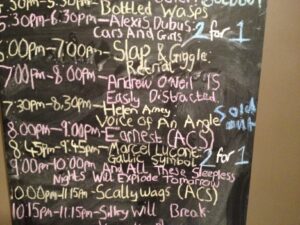 5.30pm-5.30pm- Bottled Wasps
5.30pm-6.30pm- Alexis Dubus:
Cars And Girls
2 for 1
6.00pm-7.00pm- Slap & Giggle:
7.00pm-8.00pm- Andrew O'Neil 'IS
Easily Distracted
7.30pm-8.30pm- Helen Arney
Voice of An Angle
Sold out
8.00pm-9.00pm- Earnest (ACS)
8.45pm-9.45pm- Marcel Lucont
Gallic Symbol
2 for 1
9.00pm-10.00pm And All These Sleepless
Nights Will Explode Tomorrow
10.00pm-11.15pm- Scallywags (ACS)
10.15pm-11.15pm- Silky Will Break